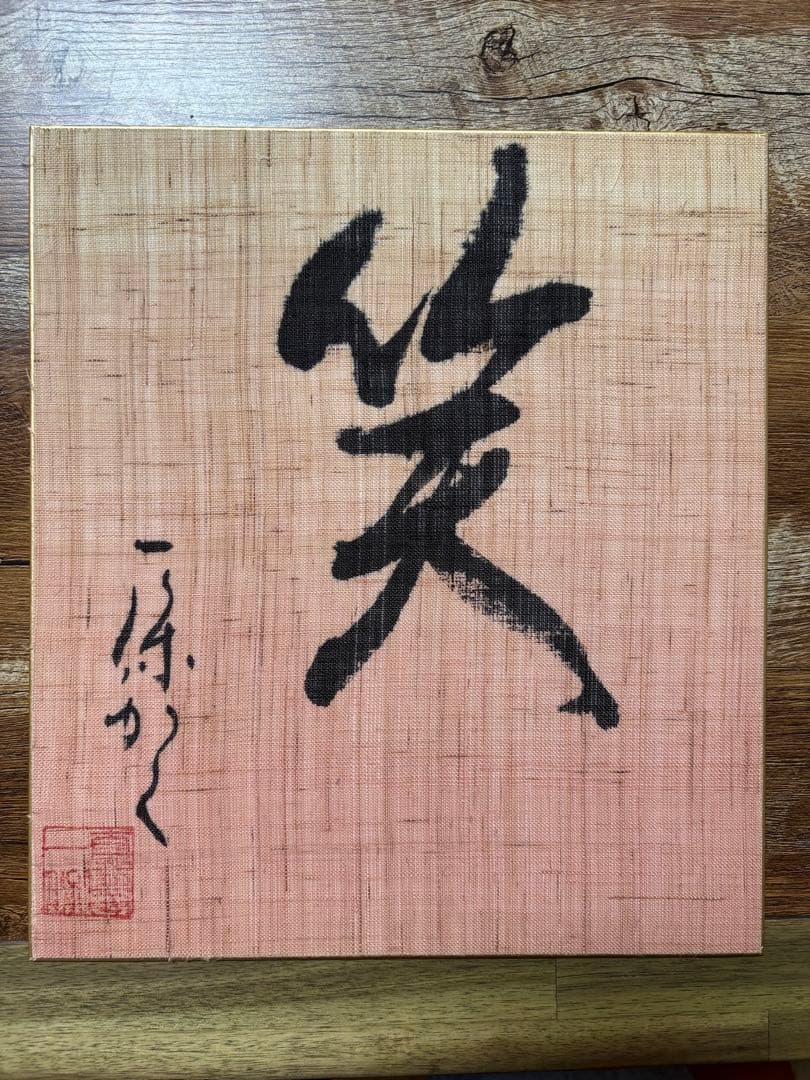 笑
一源かく